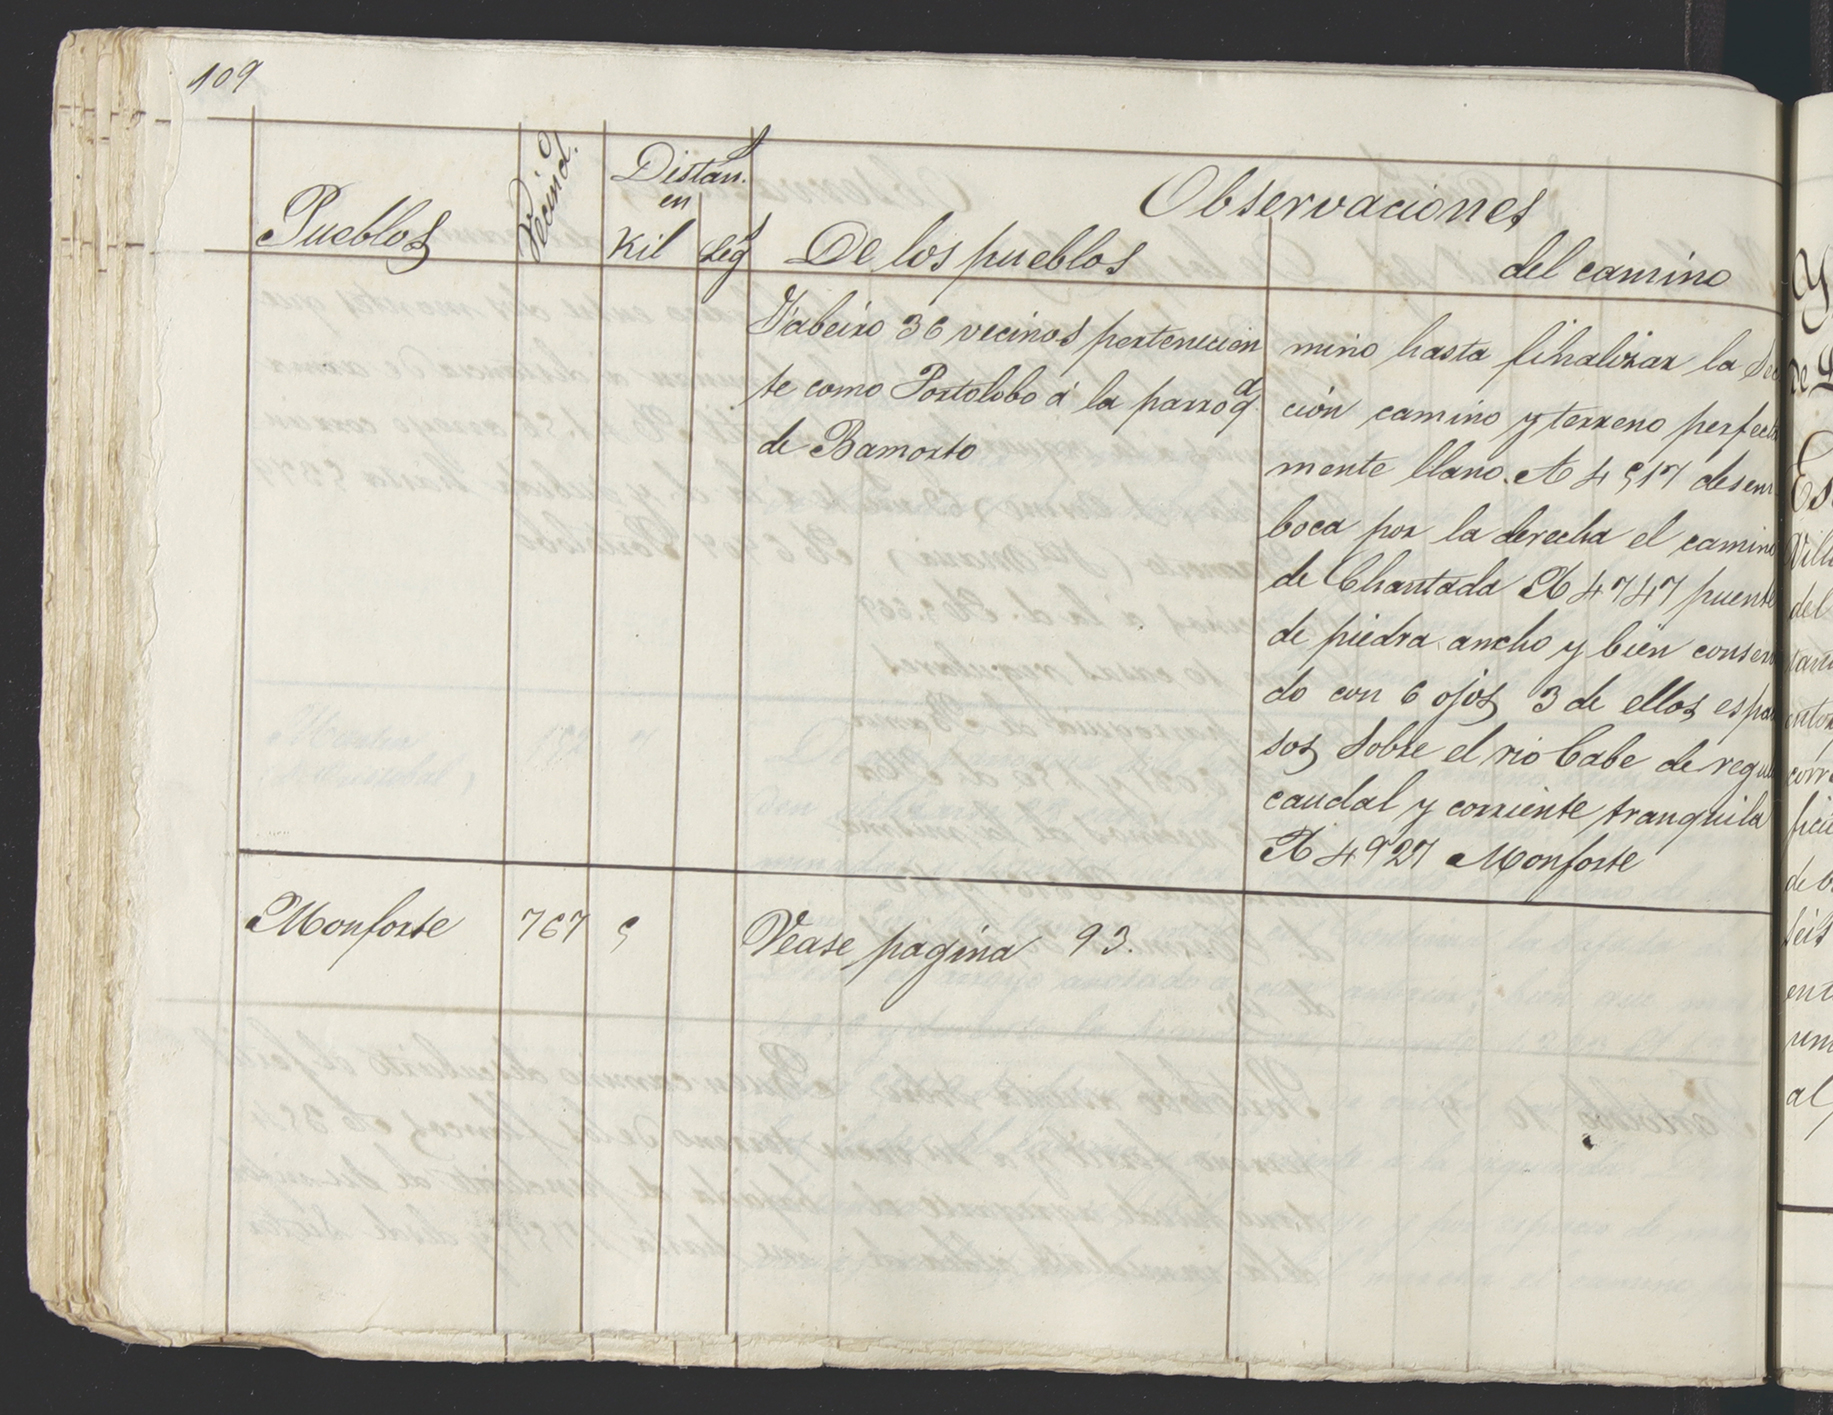 109
Pueblos
Vecind.º
Distan.s
en
Kil
Leg.s
Observaciones
De los pueblos
del camino
Vabeiro 36 vecinos pertenecien
te como Portolobo á la parroq.a
de Bamorto
mino hasta finalizar la Sec
ción camino y terreno perfecta
mente llano. A 4517 desem
boca por la derecha el camino
de Chantada A 4747 puente
de piedra ancho y bien conser
do con 6 ojos 3 de ellos espa
sos sobre el rio Cabe de regu
caudal y corriente tranquila
A 4927 Monforte
Monforte 767 5 Vease pagina 93.